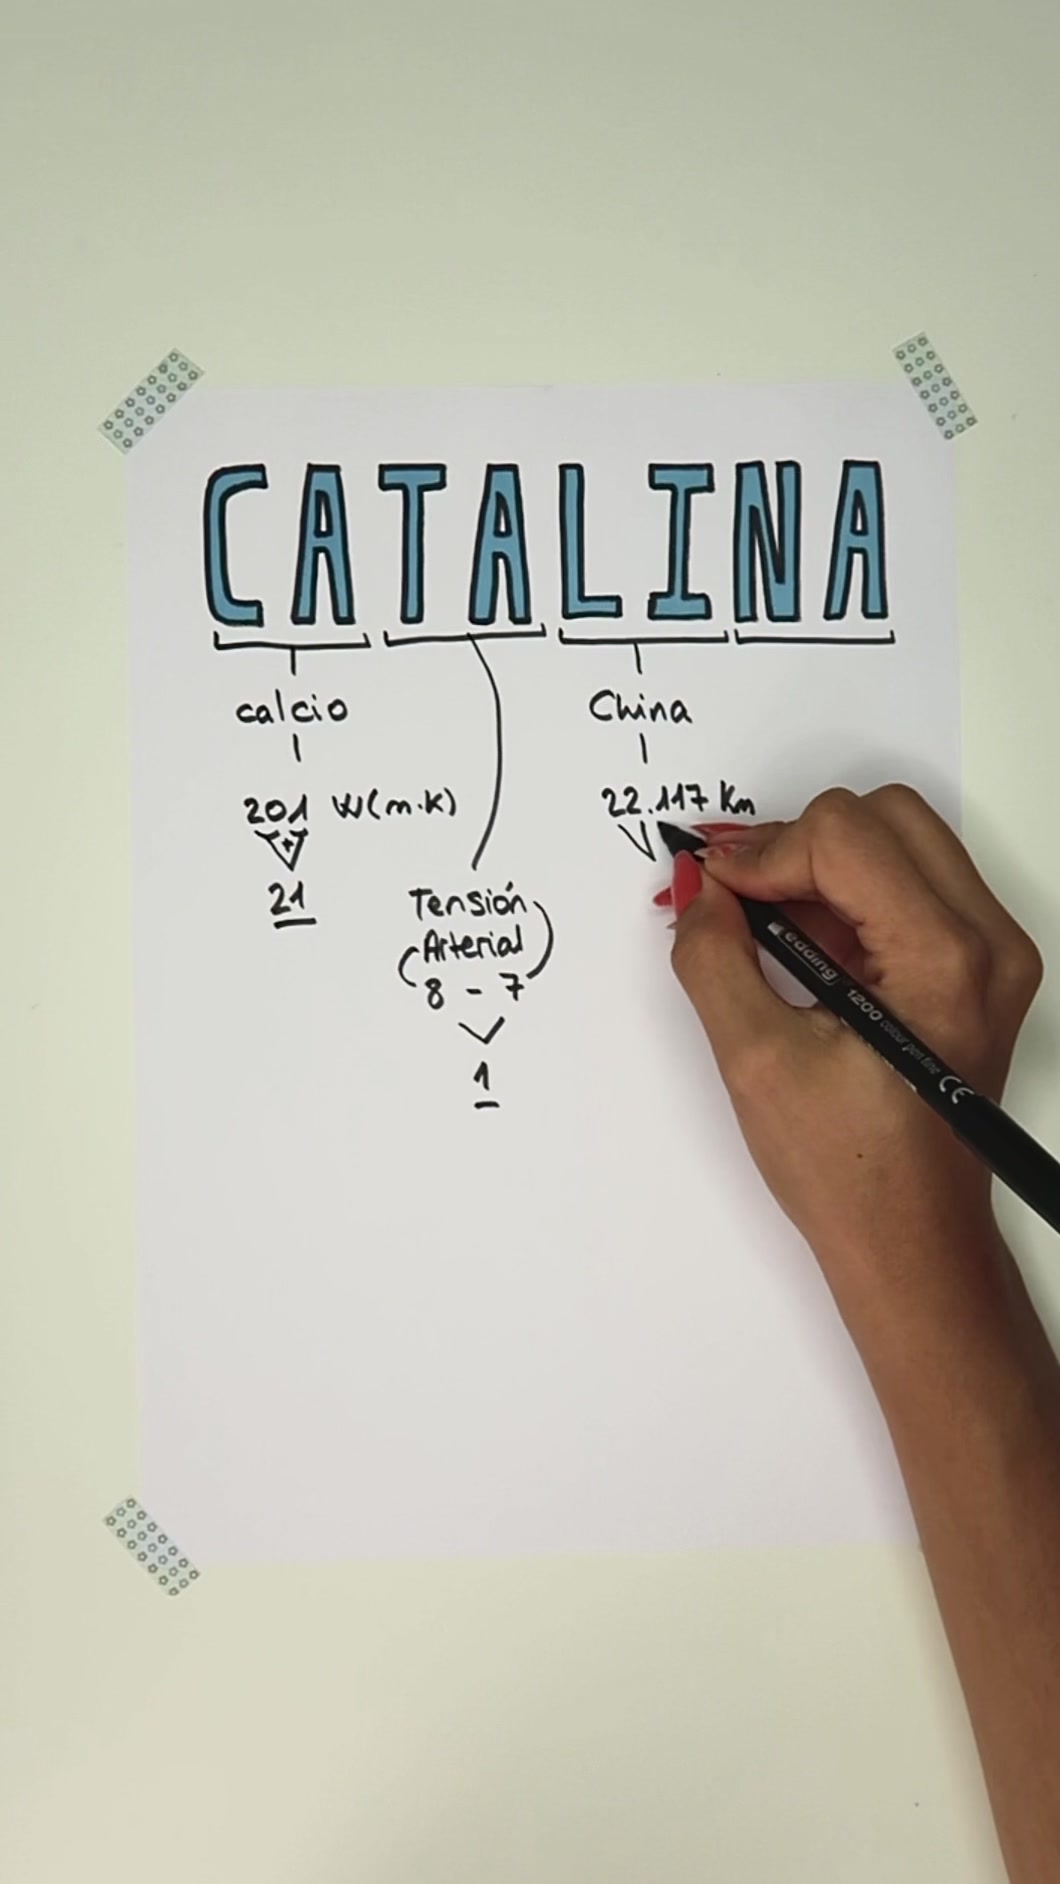 CATALINA
calcio
201 W(m.K)
+
21
China
22.117 Km
Tensión
Arterial
8 - 7
1
edding 1200 colour pen fine CE